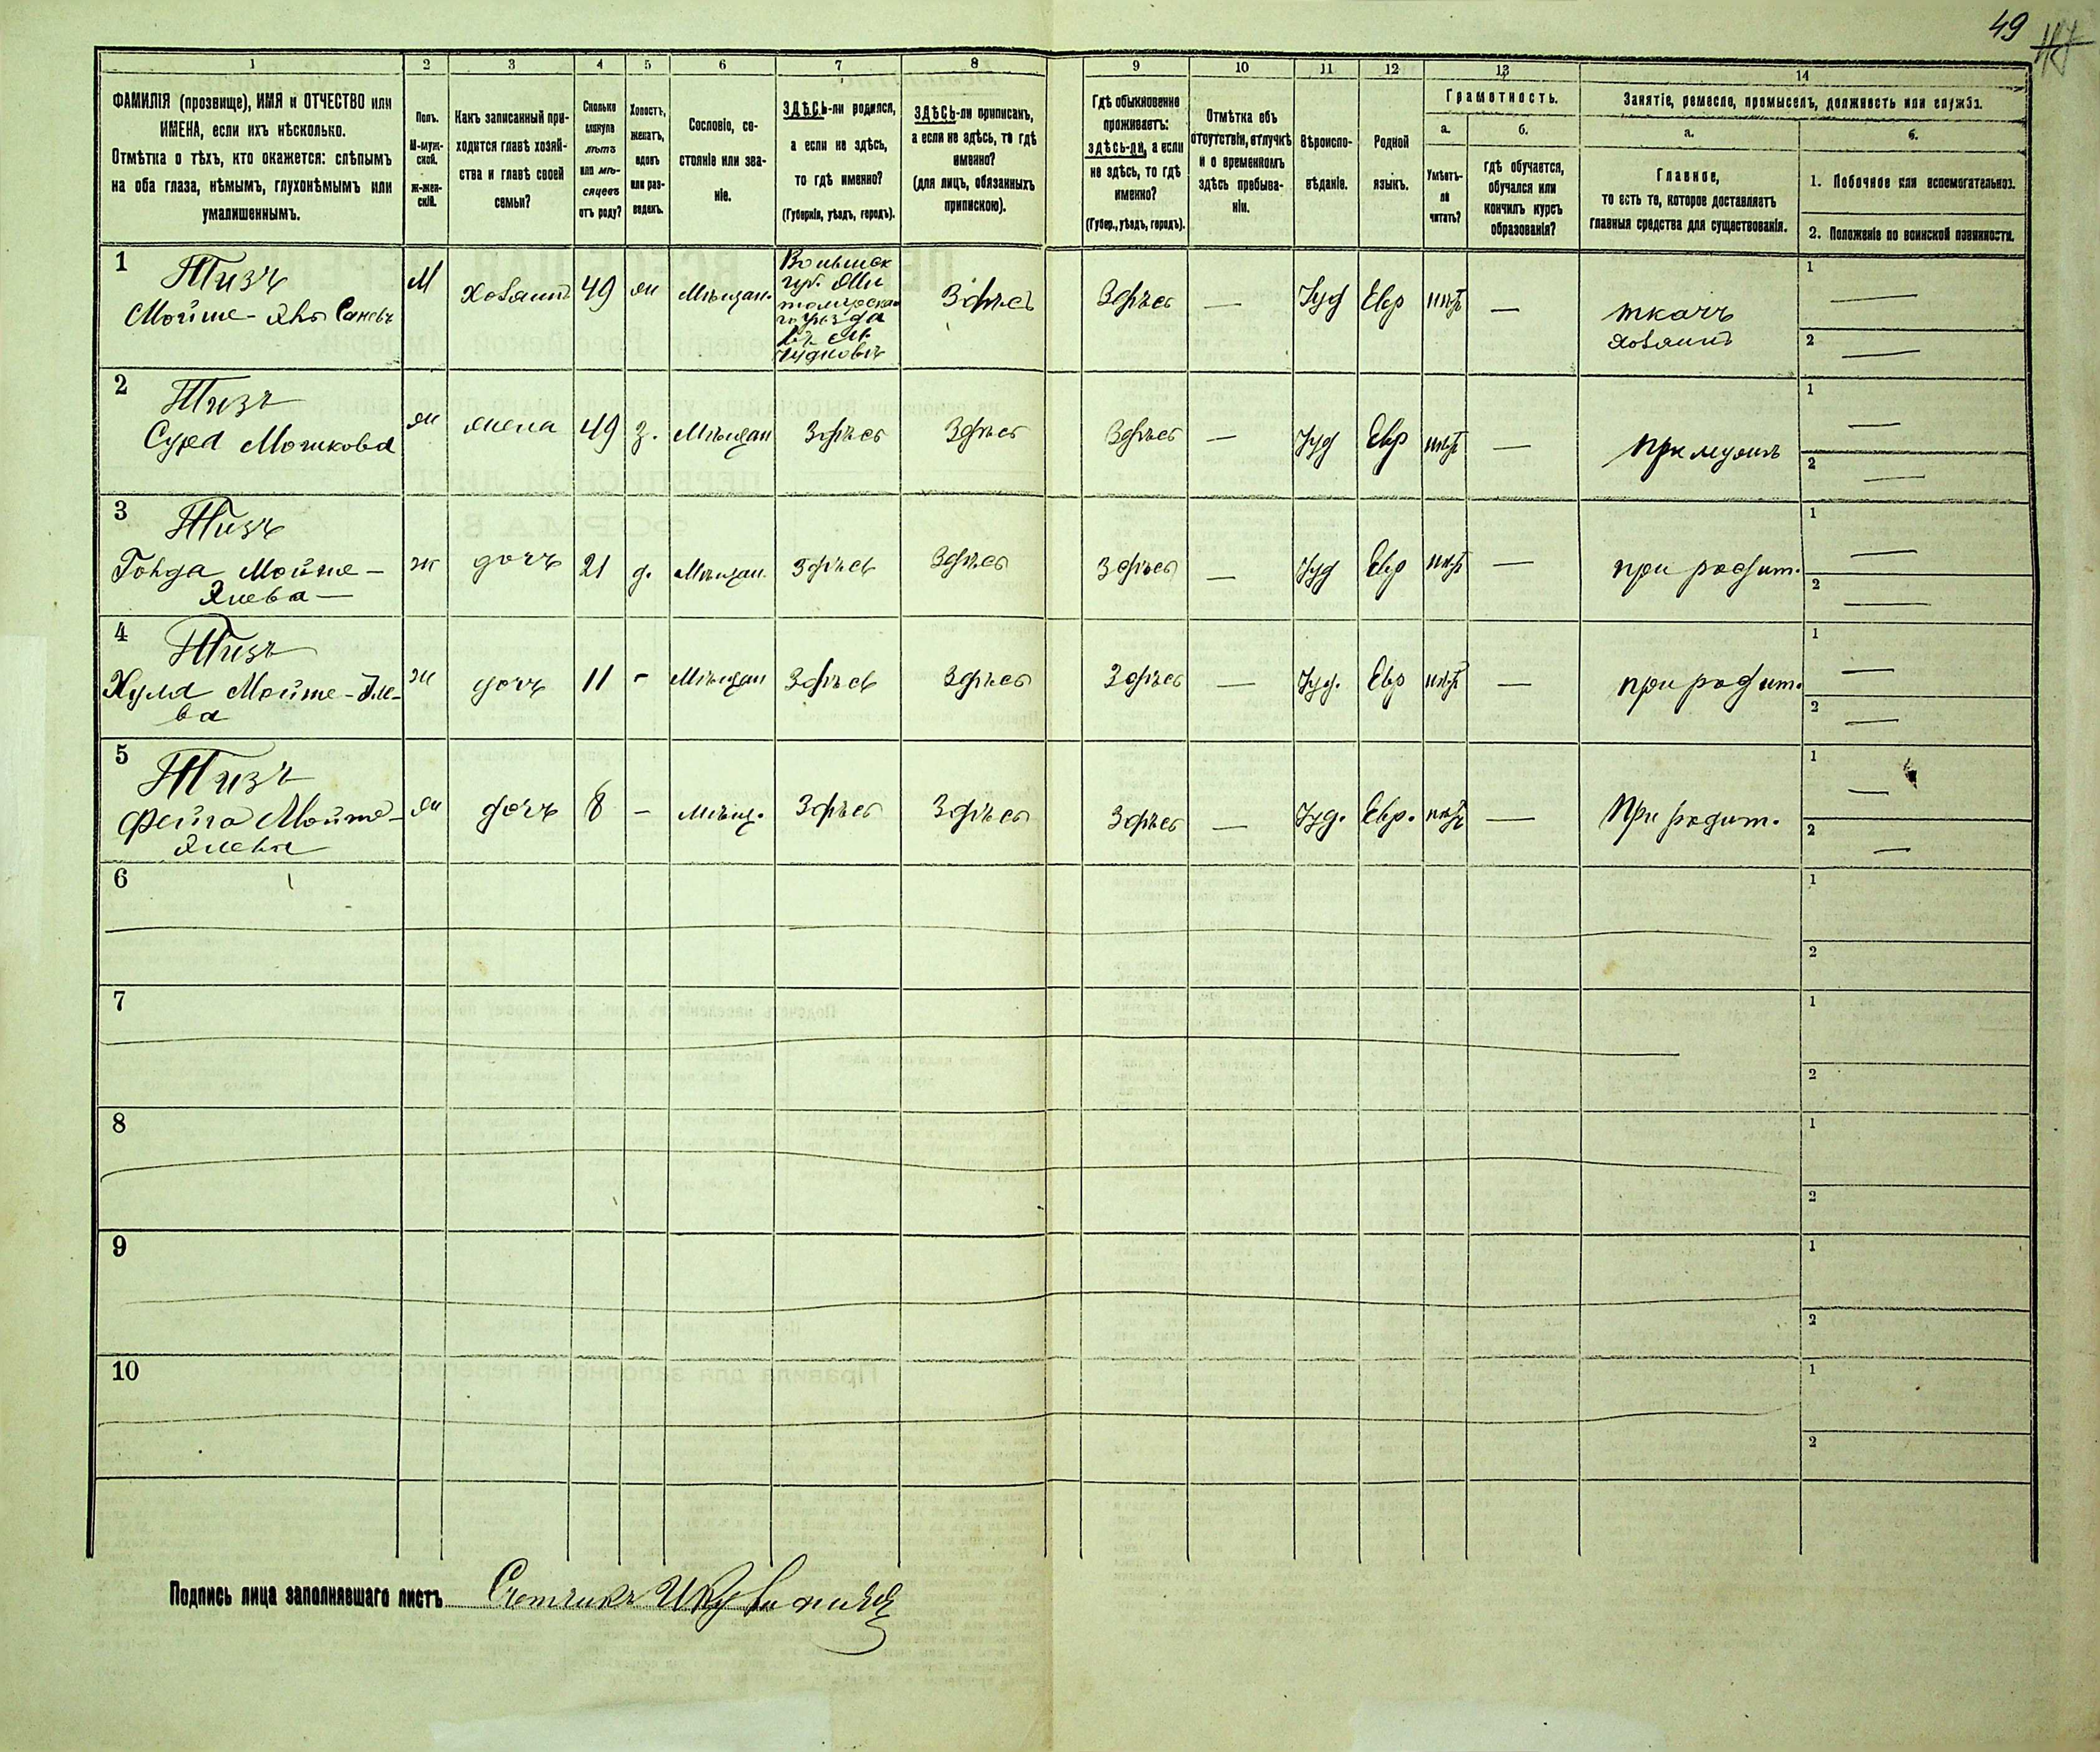 49
1 2 3 4 5 6 7 8 9 10 11 12 13 14
ФАМИЛІЯ (прозвище), ИМЯ и ОТЧЕСТВО или
ИМЕНА, если ихъ нѣсколько.
Отмѣтка о тѣхъ, кто окажется: слѣпымъ
на оба глаза, нѣмымъ, глухонѣмымъ или
умалишеннымъ.
Полъ.
М-муж-
ской.
ж-жен-
скій.
Какъ записанный при-
ходится главѣ хозяй-
ства и главѣ своей
семьи?
Сколько
минуло
лѣтъ
или мѣ-
сяцевъ
отъ роду?
Холостъ,
женатъ,
вдовъ
или раз-
веденъ.
Сословіе, со-
стояніе или зва-
ніе.
ЗДѢСЬ-ли родился,
а если не здѣсь,
то гдѣ именно?
(Губернія, уѣздъ, городъ).
ЗДѢСЬ-ли приписанъ,
а если не здѣсь, то гдѣ
именно?
(для лицъ, обязанныхъ
припискою).
Гдѣ обыкновенно
проживаетъ:
здѣсь-ли, а если
не здѣсь, то гдѣ
именно?
(Губер., уѣздъ, городъ).
Отмѣтка объ
отсутствіи, отлучкѣ
и о временномъ
здѣсь пребыва-
ніи.
Вѣроиспо-
вѣданіе.
Родной
языкъ.
Грамотность.
а.
Умѣетъ-
ли
читать?
б.
гдѣ обучается,
обучался или
кончилъ курсъ
образованія?
Занятіе, ремесло, промыселъ, должность или служба.
а.
Главное,
то есть то, которое доставляетъ
главныя средства для существованія.
б.
1. Побочное или вспомогательное.
2. Положеніе по воинской повинности.
1 Тизъ
Мойше-
М
Хозяинъ
49
ж
Мѣщан.
Волынск
губ. Жи
томирскаго
уѣзда
въ м.
Чудновъ
Здѣсь
Здѣсь
—
Іуд
Евр
нѣтъ
—
ткачъ
хозяинъ
1 —
2 —
2 Тизъ
Сура Мошкова
ж
жена
49
з.
Мѣщан
Здѣсь
Здѣсь
Здѣсь
—
Іуд
Евр
нѣтъ
—
при мужѣ
1 —
2 —
3 Тизъ
Мойше-
ж
дочь
21
д.
Мѣщан.
Здѣсь
Здѣсь
Здѣсь
—
Іуд
Евр
нѣтъ
—
при родит.
1 —
2 —
4 Тизъ
Мойше-
ва
ж
дочь
11
-
Мѣщан
Здѣсь
Здѣсь
Здѣсь
—
Іуд.
Евр
нѣтъ
—
при родит.
1 —
2 —
5 Тизъ
Фейга Мойше-
ж
дочь
8
-
Мѣщ.
Здѣсь
Здѣсь
Здѣсь
—
Іуд.
Евр.
нѣтъ
—
При родит.
1 —
2 —
6
1
2
7
1
2
8
1
2
9
1
2
10
1
2
Подпись лица заполнявшаго листъ Счетчикъ